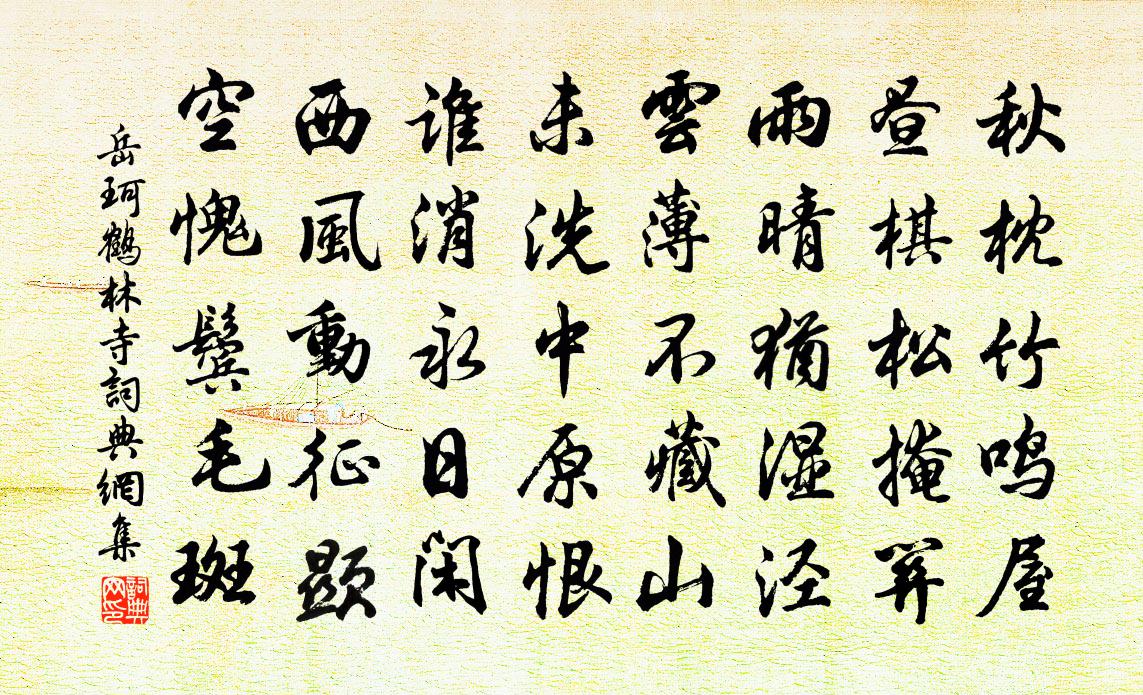 秋枕竹鸣屋
昼棋松掩關
雨晴猶湿泾
雲薄不藏山
未洗中原恨
誰消永日閑
西風動征顕
空愧鬢毛斑
岳珂鶴林寺詞典網集
詞典网印